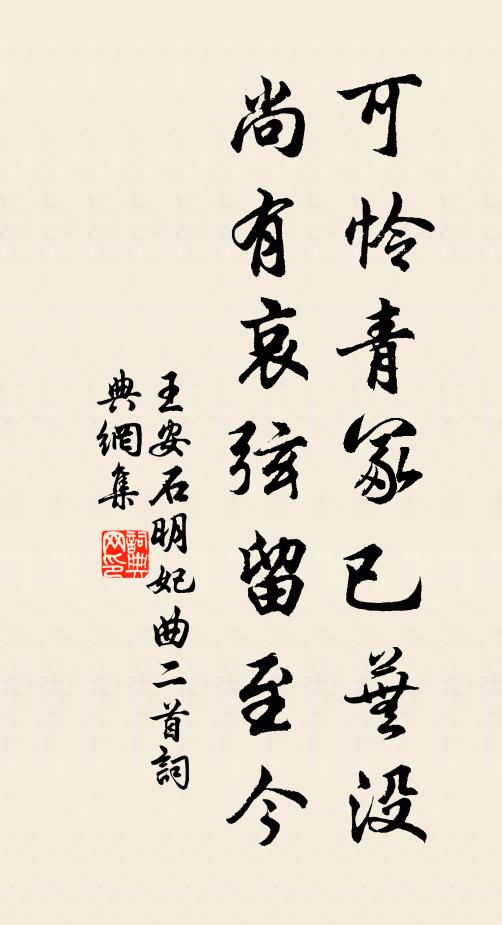 可怜青冢已蕪没
尚有哀弦留至今
王安石明妃曲二首詞
典網集
詞典
网印